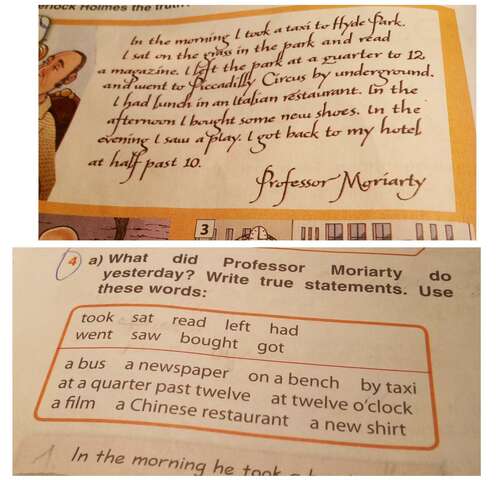 Holmes the
In the morning I took a taxi to Hyde Park.
I sat on the grass in the park and read
a magazine. I left the park at a quarter to 12
and went to Piccadilly Circus by underground.
I had lunch in an Italian restaurant. In the
afternoon I bought some new shoes. In the
evening I saw a play. I got back to my hotel
at half past 10.
Professor Moriarty
3
4 a) What did Professor Moriarty do
yesterday? Write true statements. Use
these words:
took sat read left had
went saw bought got
a bus a newspaper on a bench by taxi
at a quarter past twelve at twelve o'clock
a film a Chinese restaurant a new shirt
1 In the morning he took a